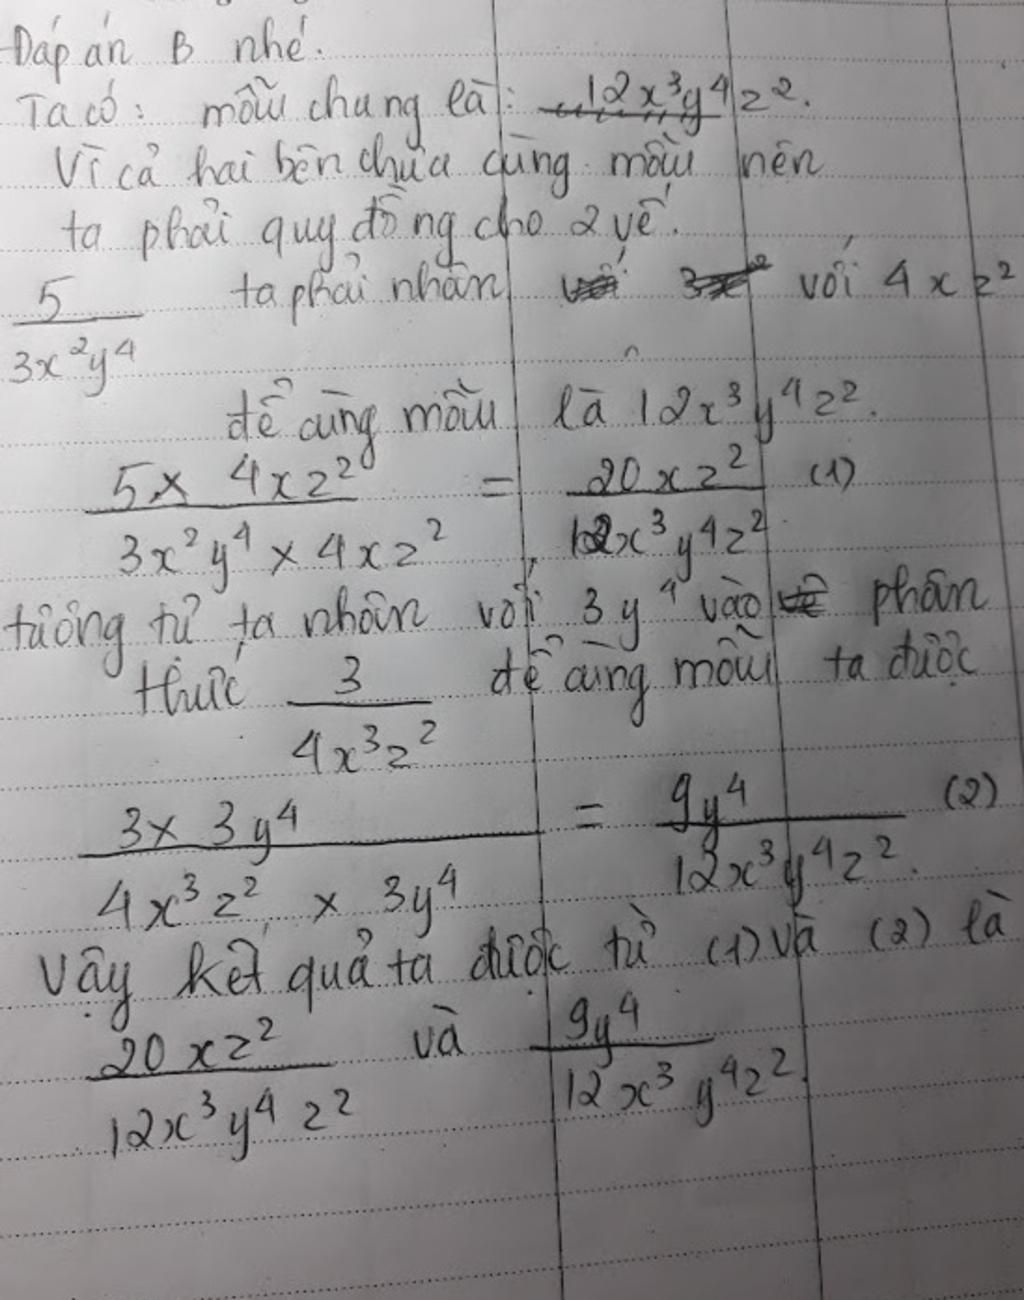 Đáp án B nhé.
Ta có: mẫu chung là: 12x³y⁴z².
Vì cả hai bên chưa cùng mẫu nên
ta phải quy đồng cho 2 vế.
5/3x²y⁴ ta phải nhân với 4xz²
để cùng mẫu là 12x³y⁴z².
5 × 4xz²/3x²y⁴ × 4xz² = 20xz²/12x³y⁴z² (1)
tương tự ta nhân với 3y⁴ vào phân
thức 3/4x³z² để cùng mẫu ta được
3 × 3y⁴/4x³z² × 3y⁴ = 9y⁴/12x³y⁴z². (2)
Vậy kết quả ta được từ (1) và (2) là
20xz²/12x³y⁴z² và 9y⁴/12x³y⁴z².